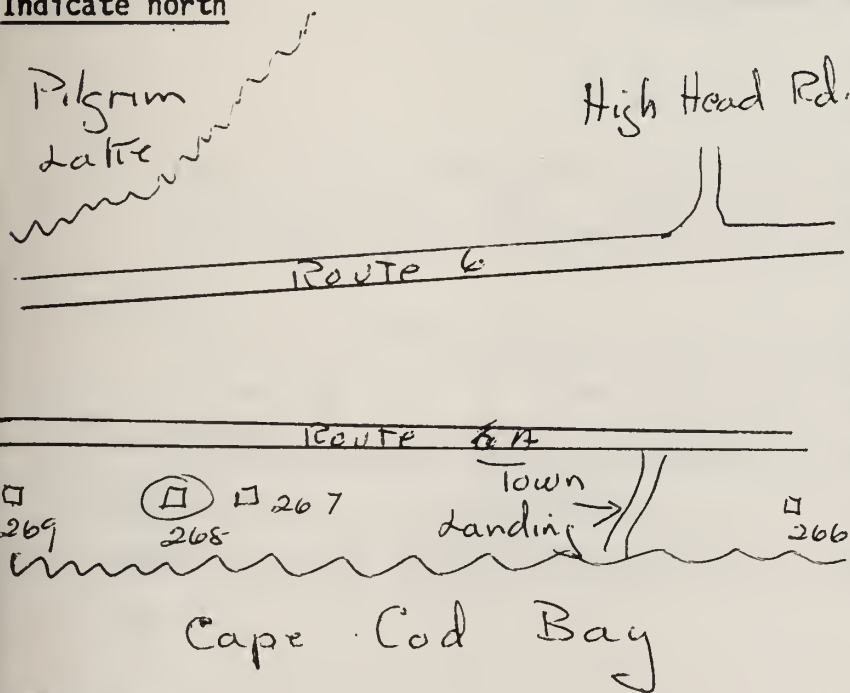 Indicate north
Pilgrim
Lake
High Head Rd.
Route 6
Route 6A
Town
Landing
269
268
267
266
Cape Cod Bay